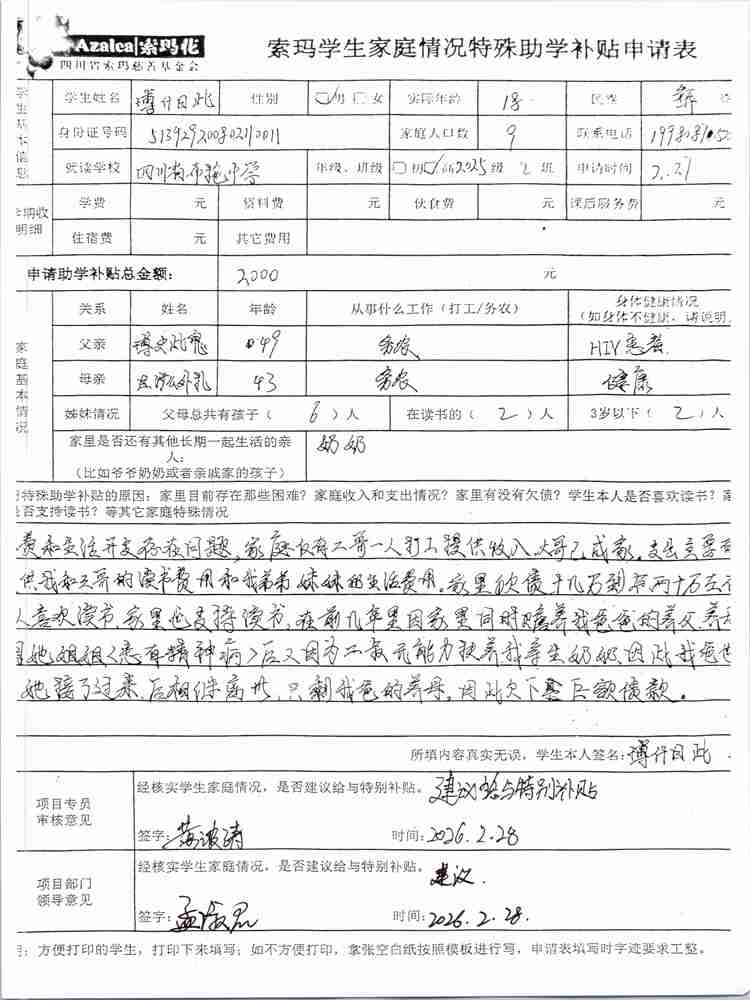 Azalea 索玛花
四川省索玛慈善基金会
索玛学生家庭情况特殊助学补贴申请表
学生基本信息
学生姓名 博什日此 性别 ☑男 □女 实际年龄 18 民族 彝
身份证号码 513929200802110011 家庭人口数 9 联系电话
就读学校 四川省布拖中学 年级、班级 □初 ☑高2025级 2班 申请时间 2.27
学费 元 资料费 元 伙食费 元 课后服务费 元
明细
住宿费 元 其它费用
申请助学补贴总金额: 2000 元
家庭基本情况
关系 姓名 年龄 从事什么工作(打工/务农) 身体健康情况
(如身体不健康,请说明
父亲 博史此鬼 49 务农 HIV患者
母亲 43 务农 健康
姊妹情况 父母总共有孩子( 6 )人 在读书的( 2 )人 3岁以下( 2 )人
家里是否还有其他长期一起生活的亲人: 奶奶
(比如爷爷奶奶或者亲戚家的孩子)
特殊助学补贴的原因:家里目前存在那些困难?家庭收入和支出情况?家里有没有欠债?学生本人是否喜欢读书?
是否支持读书?等其它家庭特殊情况
费和生活开支存在问题,家庭仅有二哥一人打工提供收入,大哥已成家,支出主要
供我和三哥的读书费用和我弟弟妹妹的生活费用。家里欠债十几万到将两十万左
人喜欢读书,家里也支持读书,在前几年里因家里同时赡养我爸爸的养父、养
她姐姐<患有精神病>后又因为二叔无能力扶养我亲生奶奶,因此我爸
她接了过来,后相继病世,只剩我爸的养母,因此欠下巨额债款。
所填内容真实无误,学生本人签名: 博什日此
项目专员
审核意见
经核实学生家庭情况,是否建议给与特别补贴。 建议给与特别补贴
签字: 黄波涛 时间: 2026.2.28
项目部门
领导意见
经核实学生家庭情况,是否建议给与特别补贴。 建议.
签字: 时间: 2026.2.28.
方便打印的学生,打印下来填写;如不方便打印,拿张空白纸按照模板进行写,申请表填写时字迹要求工整。